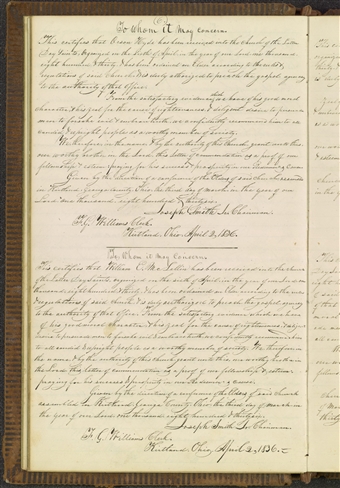 To Whom it May concern
This certifies that Orson Hyde has been received into the Church of the Latter
Day Saints, organized on the sixth of April in the year of our Lord one thousand,
eight hundred & thirty, & has been ordained an Elder according to the rules &
regulations of said Church & is duly authorized to preach the gospel agreeably
to the authority of that office.
From the satisfactory evidence which we have of his good moral
character, & his zeal for the cause of righteousness, & diligent desire to persuade
men to forsake evil & embrace truth, we confidently recommend him to all
candid & upright people as a worthy member of society.
We therefore, in the name, & by the authority of this Church, grant unto this
our worthy brother in the Lord, this letter of commendation as a proof of our
fellowship & esteem: praying for his success & prosperity in our Redeemer's cause.
Given by the direction of a conference of the Elders of said Church assembled
in Kirtland, Geauga County, Ohio, the third day of March, in the year of our
Lord one thousand, eight hundred & thirty six.
Joseph Smith Jr. Chairman.
F. G. Williams Clerk.
Kirtland, Ohio, April 2, 1836.
To Whom it may concern
This certifies that William E. Mc. Lellin has been received into the church
of the Latter Day Saints, organized on the sixth of April in the year of our Lord one
thousand, eight hundred & thirty, & has been ordained an Elder according to the rules
& regulations of said church & is duly authorized to preach the gospel agreeably
to the authority of that office. From the satisfactory evidence which we have
of his good moral character, & his zeal for the cause of righteousness, & diligent
desire to persuade men to forsake evil & embrace truth, we confidently recommend him
to all candid & upright people as a worthy member of society. We therefore, in
the name & by the authority of this church, grant unto this our worthy brother in
the Lord, this letter of commendation as a proof of our fellowship & esteem:
praying for his success & prosperity in our Redeemer's cause.
Given by the direction of a conference of the Elders of said church
assembled in Kirtland, Geauga County, Ohio, the third day of March in
the year of our Lord one thousand, eight hundred & thirty six.
Joseph Smith Jr. Chairman.
F. G. Williams Clerk.
Kirtland, Ohio, April 2, 1836.